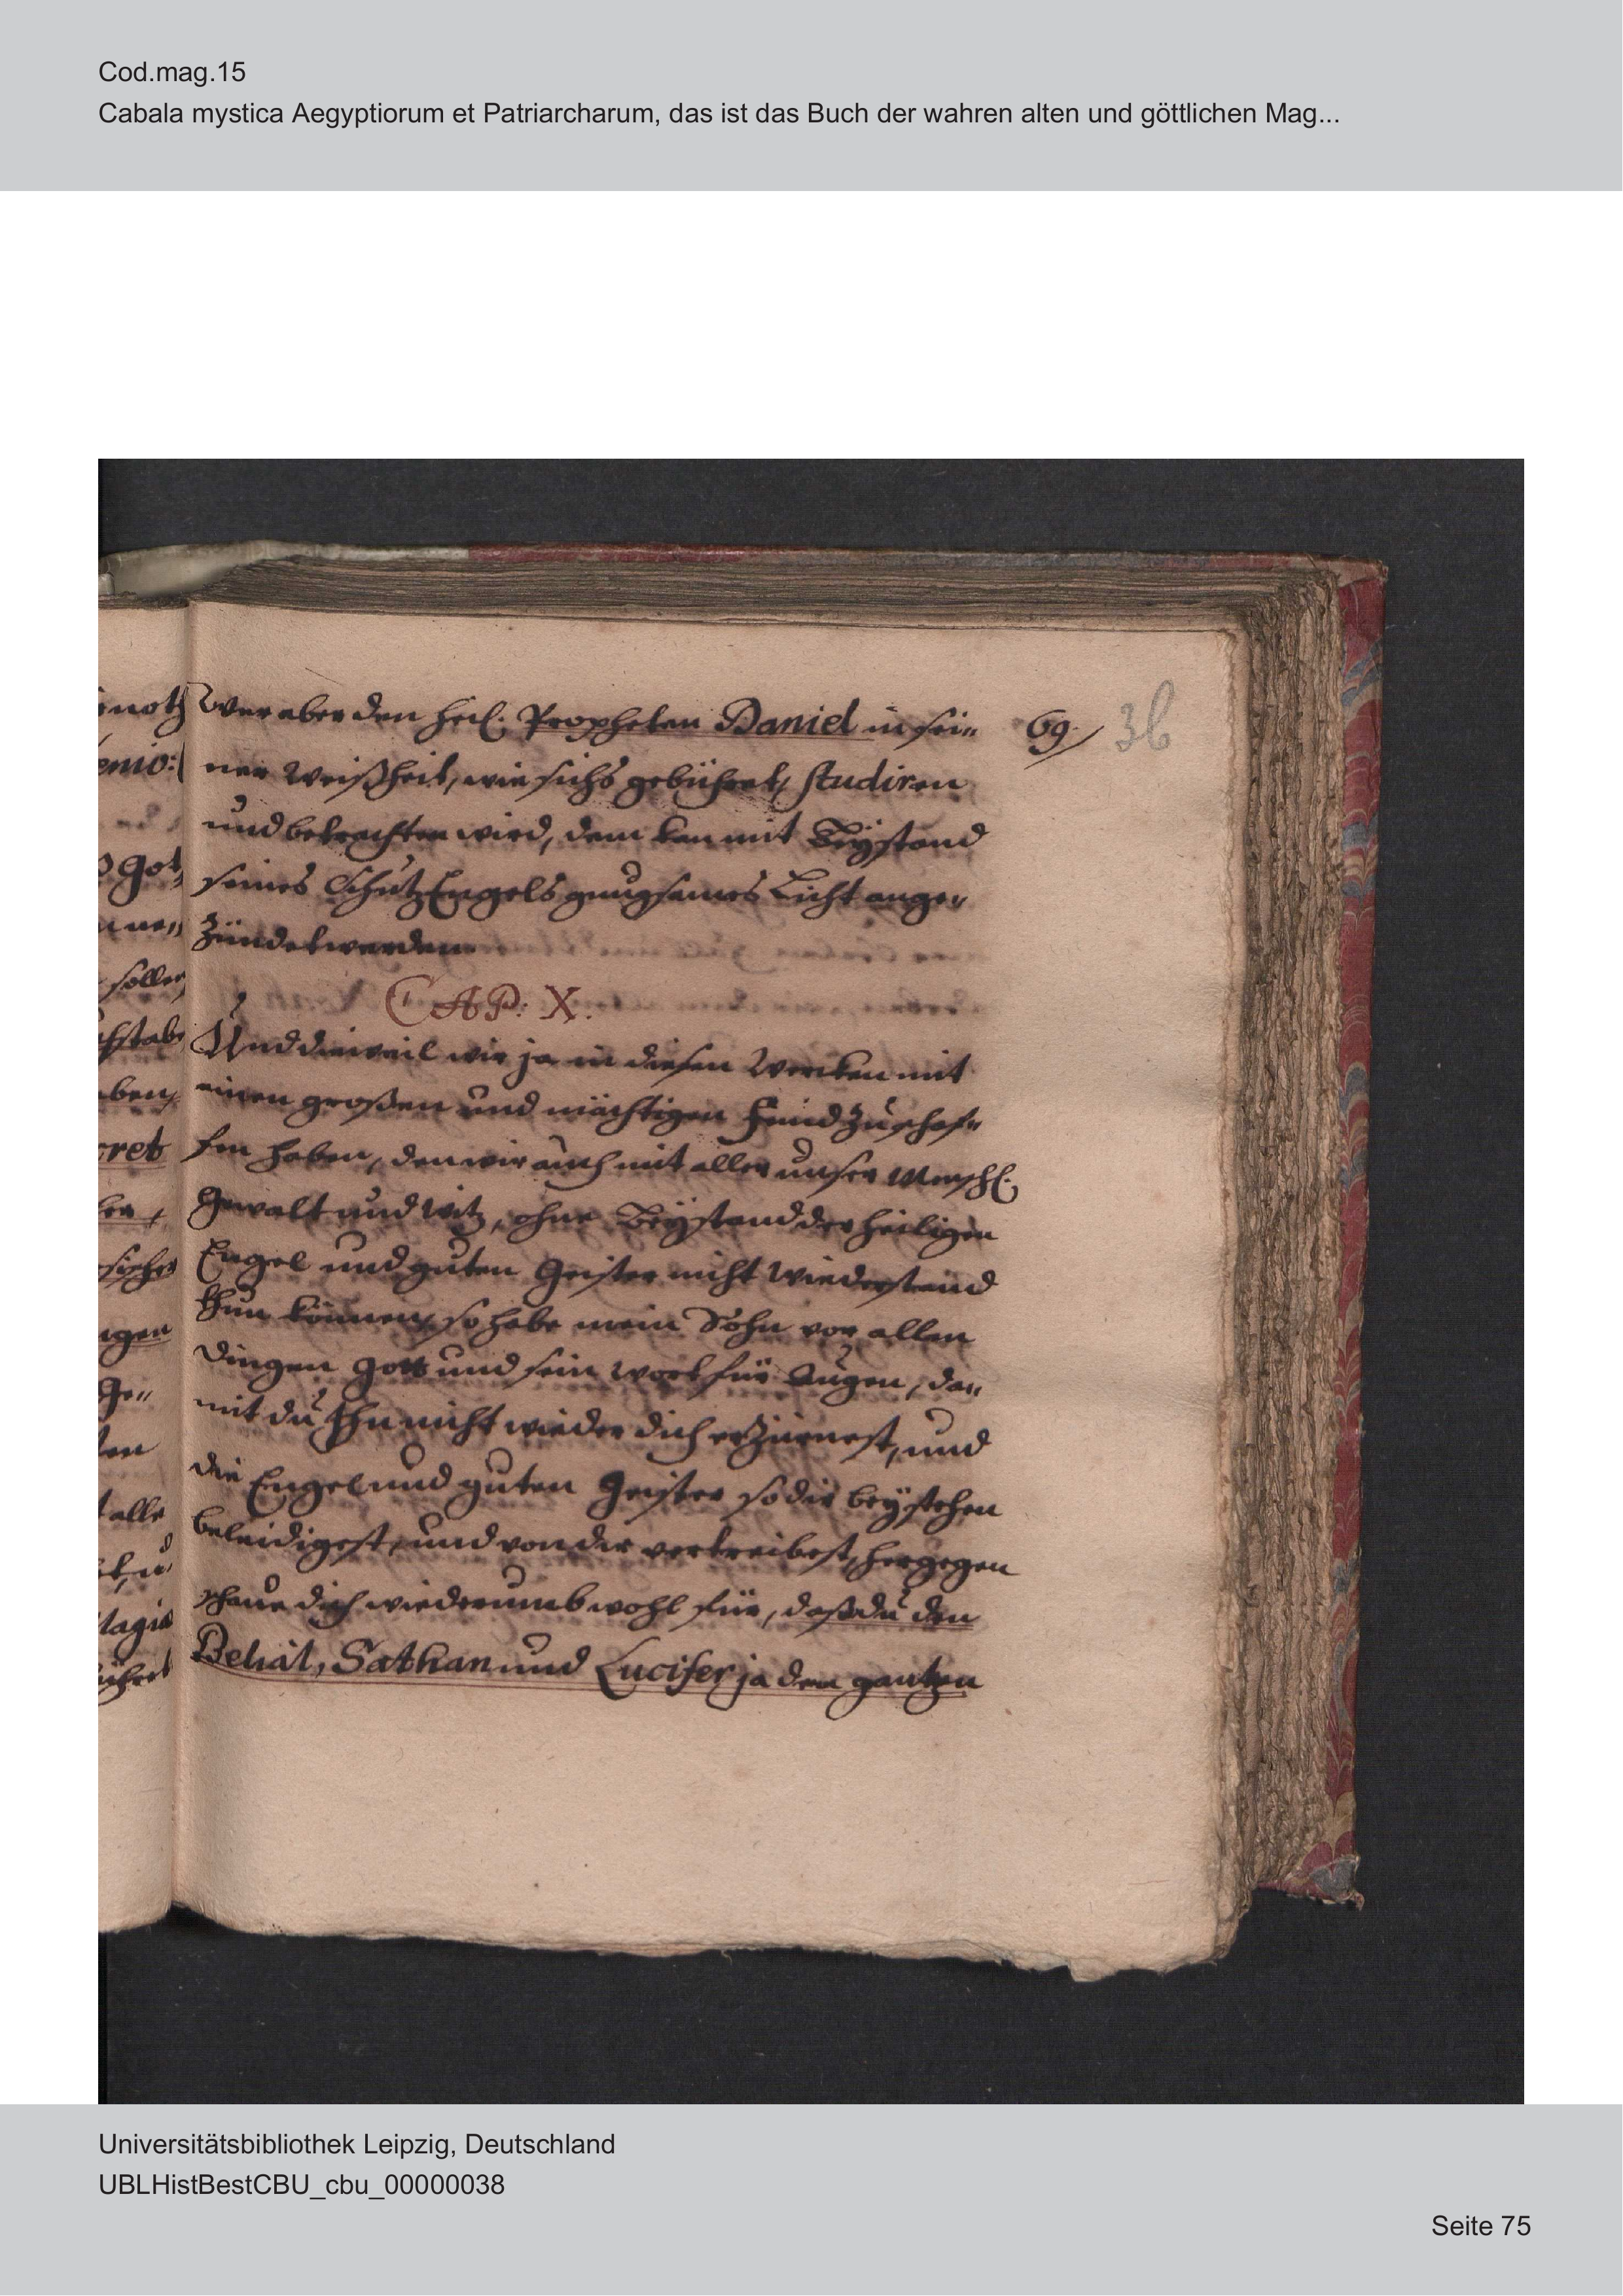 Cod.mag.15
Cabala mystica Aegyptiorum et Patriarcharum, das ist das Buch der wahren alten und göttlichen Mag...
69.
36
Wer aber den heil. Propheten Daniel in sei„
ner Weißheit, wie sichs gebühret, studiren
und betrachten wird, dem kan mit Beÿstand
seines SchutzEngels gnugsames Licht ange„
zündet werden.
CAP: X.
Und dieweil wir ja in diesen Wercken mit
einen großen und mächtigen Feind zu schaf„
fen haben, den wir auch mit aller unser Menschl.
Gewalt und Witz, ohne Beÿstand der heiligen
Engel und guten Geister nicht Wiederstand
thun können, so habe mein Sohn vor allen
Dingen Gott und sein Wort für Augen, da„
mit du Ihn nicht wieder dich erzürnest, und
die Engel und guten Geister so dir beÿstehen
beleidigest, und von dir vertreibest, hergegen
schaue dich wiederumb wohl für, daß du den
Belial, Sathan und Lucifer ja den gantzen
noth
enio:
Got„
sollen
chstabe
aben,
cret
igen
Ge„
alle
Magia
Universitätsbibliothek Leipzig, Deutschland
UBLHistBestCBU_cbu_00000038
Seite 75